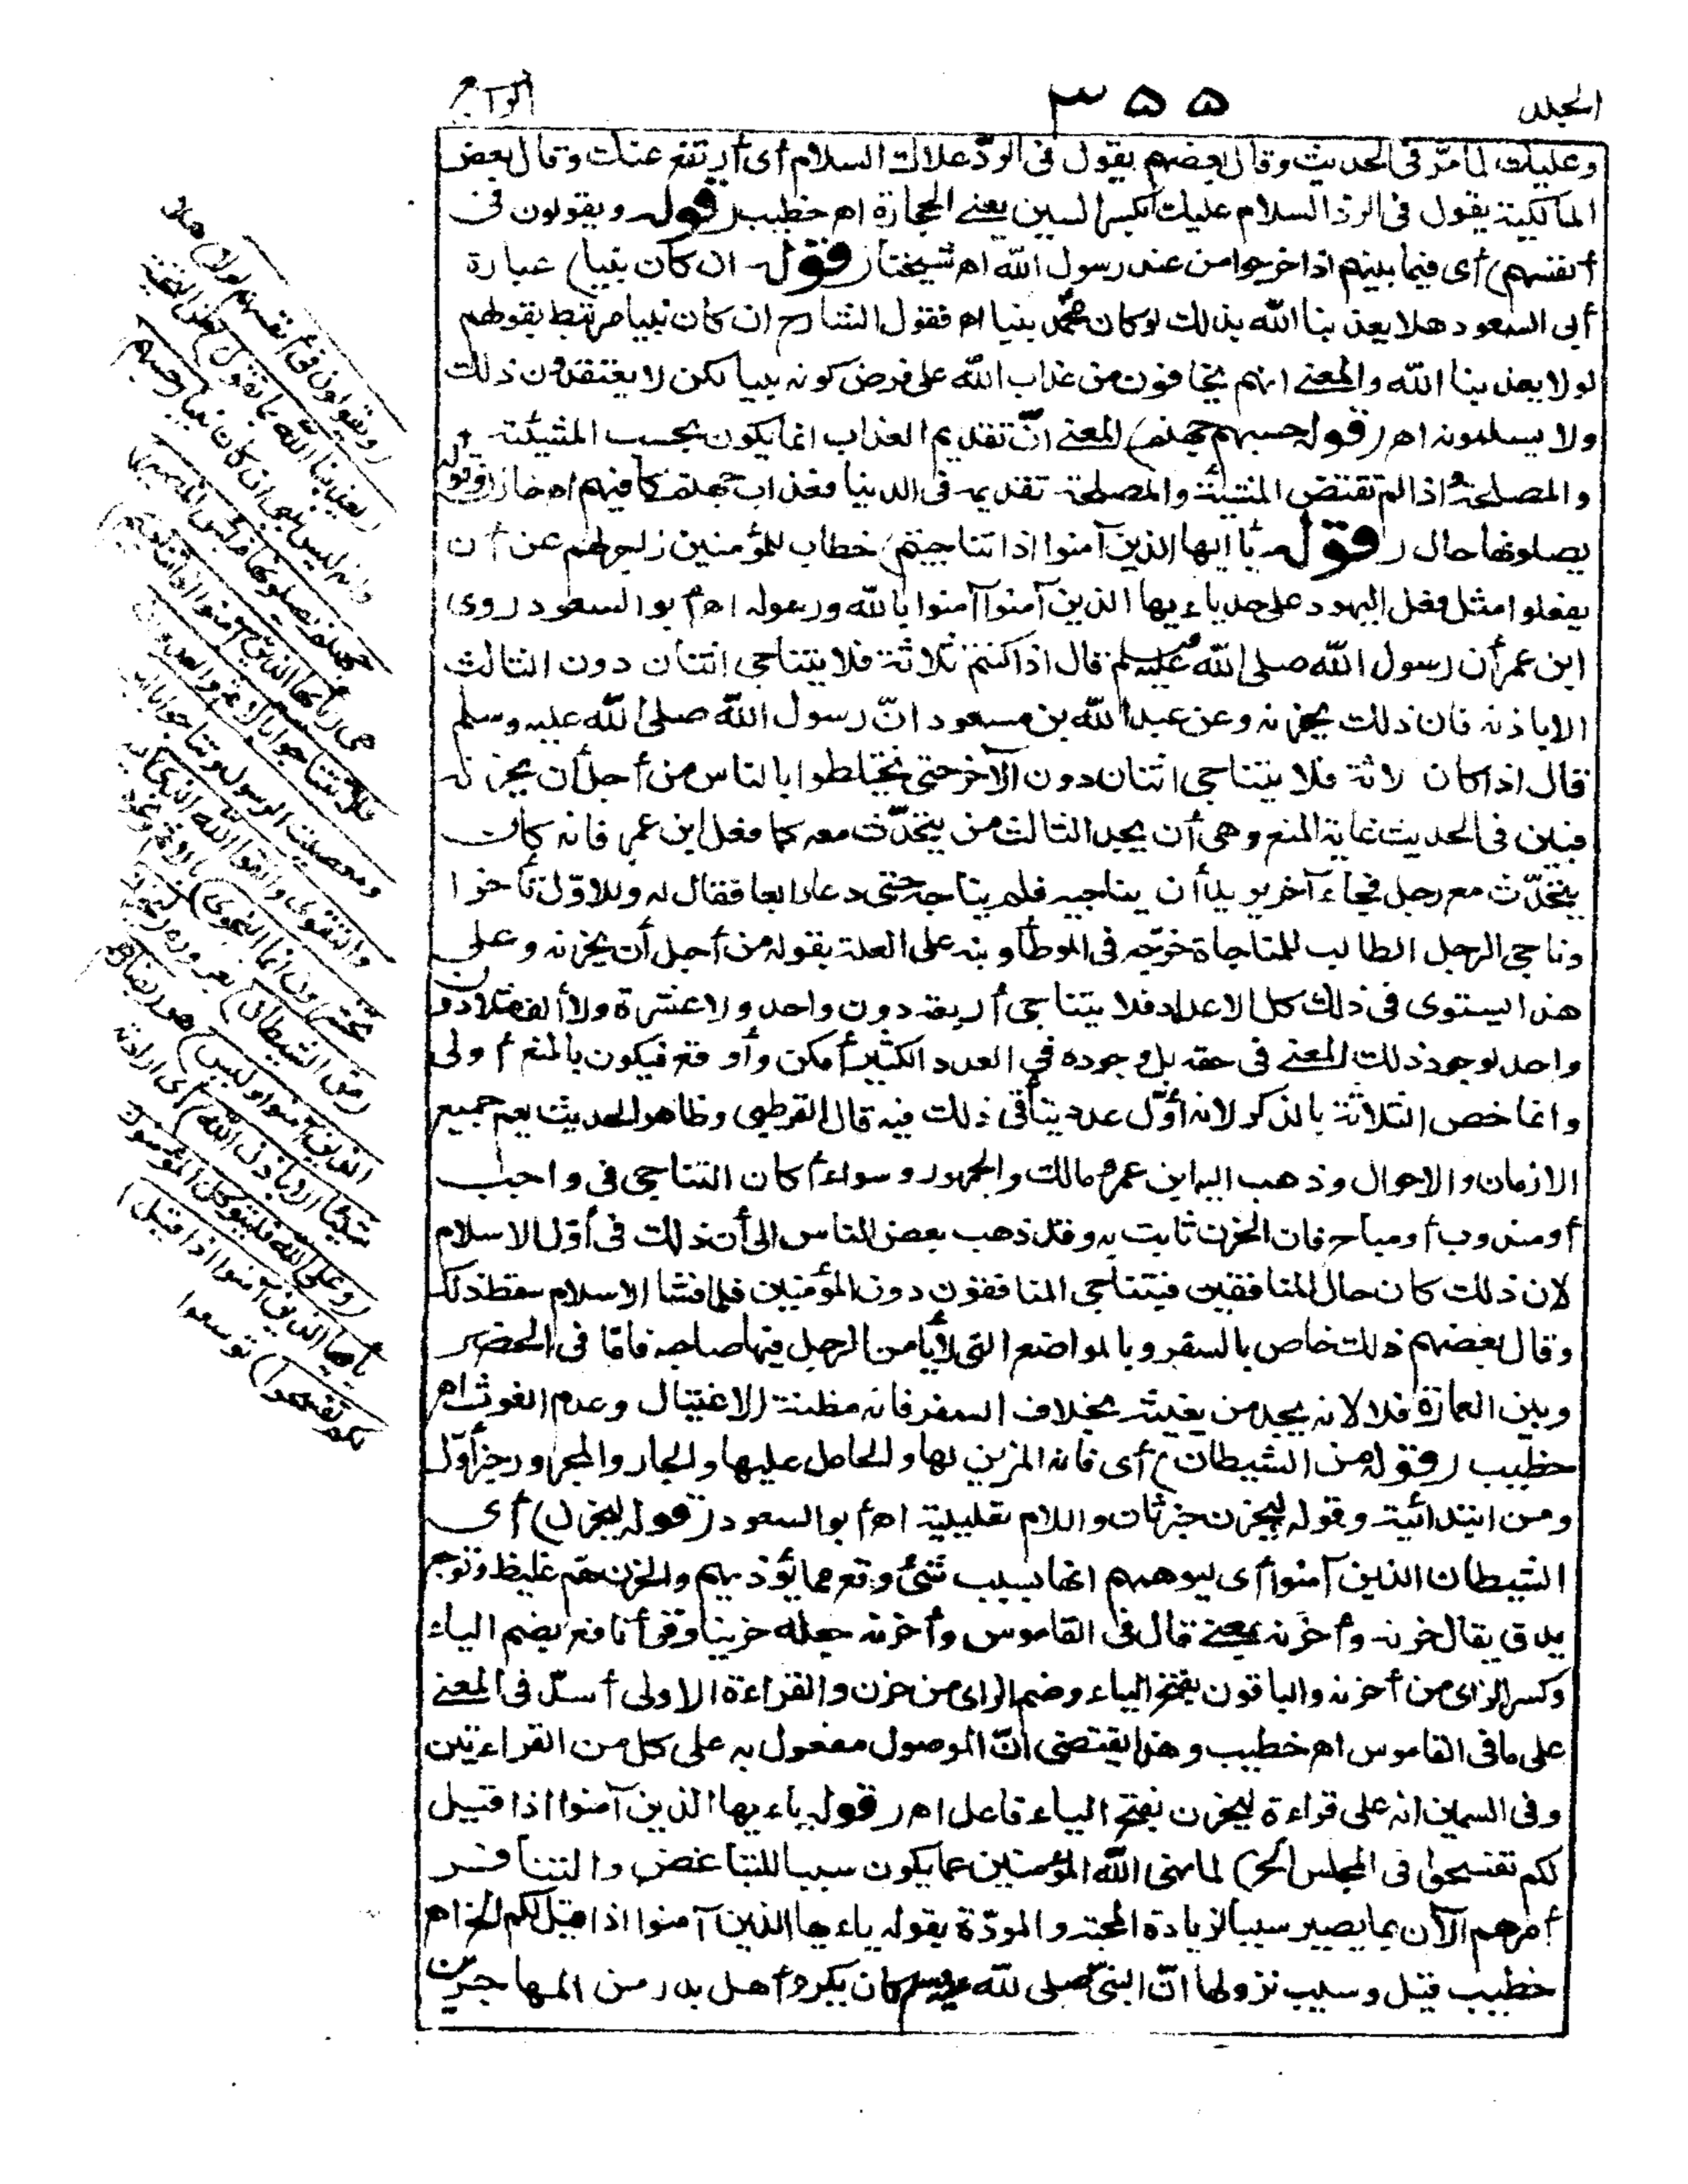 المجلد ٣٥٥ الرابع
وعليك لما مرّ فى الحديث وقال بعضهم يقول فى الردّ علاك السلام أى أرتفع عنك وقال بعض
المالكية يقول فى الردّ السلام عليك بكسر السين يعنى الحجارة اه خطيب (قوله ويقولون فى
أنفسهم) أى فيما بينهم اذا خرجوا من عند رسول الله اه شيخنا (قوله ان كان نبيا) عبارة
أبى السعود هلا يعذبنا الله بذلك لو كان محمد نبيا اه فقول الشارح ان كان نبيا مرتبط بقولهم
لولا يعذبنا الله والمعنى انهم يخافون من عذاب الله على فرض كونه نبيا لكن لا يعتقدون ذلك
ولا يسلمونه اه (قوله حسبهم جهنم) المعنى انّ تقديم العذاب انما يكون بحسب المشيئة
والمصلحة واذا لم تقتض المشيئة والمصلحة تقديمه فى الدنيا فعذاب جهنم كافيهم اه خازن وقوله
يصلونها حال (قوله يا أيها الذين آمنوا اذا تناجيتم) خطاب للمؤمنين زاجر لهم عن أن
يفعلوا مثل فعل اليهود على حد ياءيها الذين آمنوا آمنوا بالله ورسوله اه أبو السعود روى
ابن عمر أن رسول الله صلى الله عليه وسلم قال اذا كنتم ثلاثة فلا يتناجى اثنان دون الثالث
الا باذنه فان ذلك يحزنه وعن عبد الله بن مسعود انّ رسول الله صلى الله عليه وسلم
قال اذا كان ثلاثة فلا يتناجى اثنان دون الآخر حتى يختلطوا بالناس من أجل أن يحزنه
فبين فى الحديث غاية المنع وهى أن يجد الثالث من يتحدّث معه كما فعل ابن عمر فانه كان
يتحدّث مع رجل فجاء آخر يريد أن يناجيه فلم يناجه حتى دعا رابعا فقال له وللاوّل تأخرا
وناجى الرجل الطالب للمناجاة خرّجه فى الموطأ ونبه على العلة بقوله من أجل أن يحزنه وعلى
هذا يستوى فى ذلك كل الاعداد فلا يتناجى أربعة دون واحد ولا عشرة ولا ألف مثلا دون
واحد لوجود ذلك المعنى فى حقه بل وجوده فى العدد الكثير أمكن وأوقع فيكون بالمنع أولى
وانما خص الثلاثة بالذكر لانه أوّل عدد يتأتى ذلك فيه قال القرطبى وظاهر الحديث يعم جميع
الازمان والاحوال وذهب اليه ابن عمر ومالك والجمهور وسواء أكان التناجى فى واجب
أو مندوب أو مباح فان الحزن ثابت به وقد ذهب بعض الناس الى أن ذلك فى أوّل الاسلام
لان ذلك كان حال المنافقين فيتناجى المنافقون دون المؤمنين فلما فشا الاسلام سقط ذلك
وقال بعضهم ذلك خاص بالسفر وبالمواضع التى لا يأمن الرجل فيها صاحبه فامّا فى الحضر
وبين العمارة فلا لانه يجد من يغيثه بخلاف السفر فانه مظنة الاغتيال وعدم الغوث اه
خطيب (قوله من الشيطان) أى فانه المزين لها والحامل عليها والجار والمجرور خبر أوّل
ومن ابتدائية وقوله ليحزن خبر ثان واللام تعليلية اه أبو السعود (قوله ليحزن) أى
الشيطان الذين آمنوا أى ليوهمهم انها بسبب شئ وقع مما يؤذيهم والحزن همّ غليظ وتوجع
يدق يقال حزنه وأحزنه بمعنى قال فى القاموس وأحزنه جعله حزينا وقرأ نافع بضم الياء
وكسر الزاى من أحزنه والباقون بفتح الياء وضم الزاى من حزن والقراءة الاولى أشدّ فى المعنى
على ما فى القاموس اه خطيب وهذا يقتضى انّ الموصول مفعول به على كل من القراءتين
وفى السمين انه على قراءة ليحزن بفتح الياء فاعل اه (قوله ياءيها الذين آمنوا اذا قيل
لكم تفسحوا فى المجلس الخ) لما نهى الله المؤمنين عما يكون سببا للتباغض والتنافر
أمرهم الآن بما يصير سببا لزيادة المحبة والمودّة بقوله ياءيها الذين آمنوا اذا قيل لكم الخ اه
خطيب قيل وسبب نزولها انّ النبىّ صلى الله عليه وسلم كان يكرم أهل بدر من المهاجرين
(ويقولون فى أنفسهم لولا) هلا
(يعذبنا الله بما نقول) من التحية
وانه ليس بنبى ان كان نبيا (حسبهم
جهنم يصلونها فبئس المصير)
هى (يا أيها الذين آمنوا اذا تناجيتم
فلا تتناجوا بالاثم والعدوان
ومعصيت الرسول وتناجوا بالبر
والتقوى واتقوا الله الذى اليه
تحشرون انما النجوى) بالاثم ونحوه
(من الشيطان) بغروره (ليحزن
الذين آمنوا وليس) هو (بضارهم
شيئا الا باذن الله) أى ارادته
(وعلى الله فليتوكل المؤمنون
يأيها الذين آمنوا اذا قيل
لكم تفسحوا) توسعوا